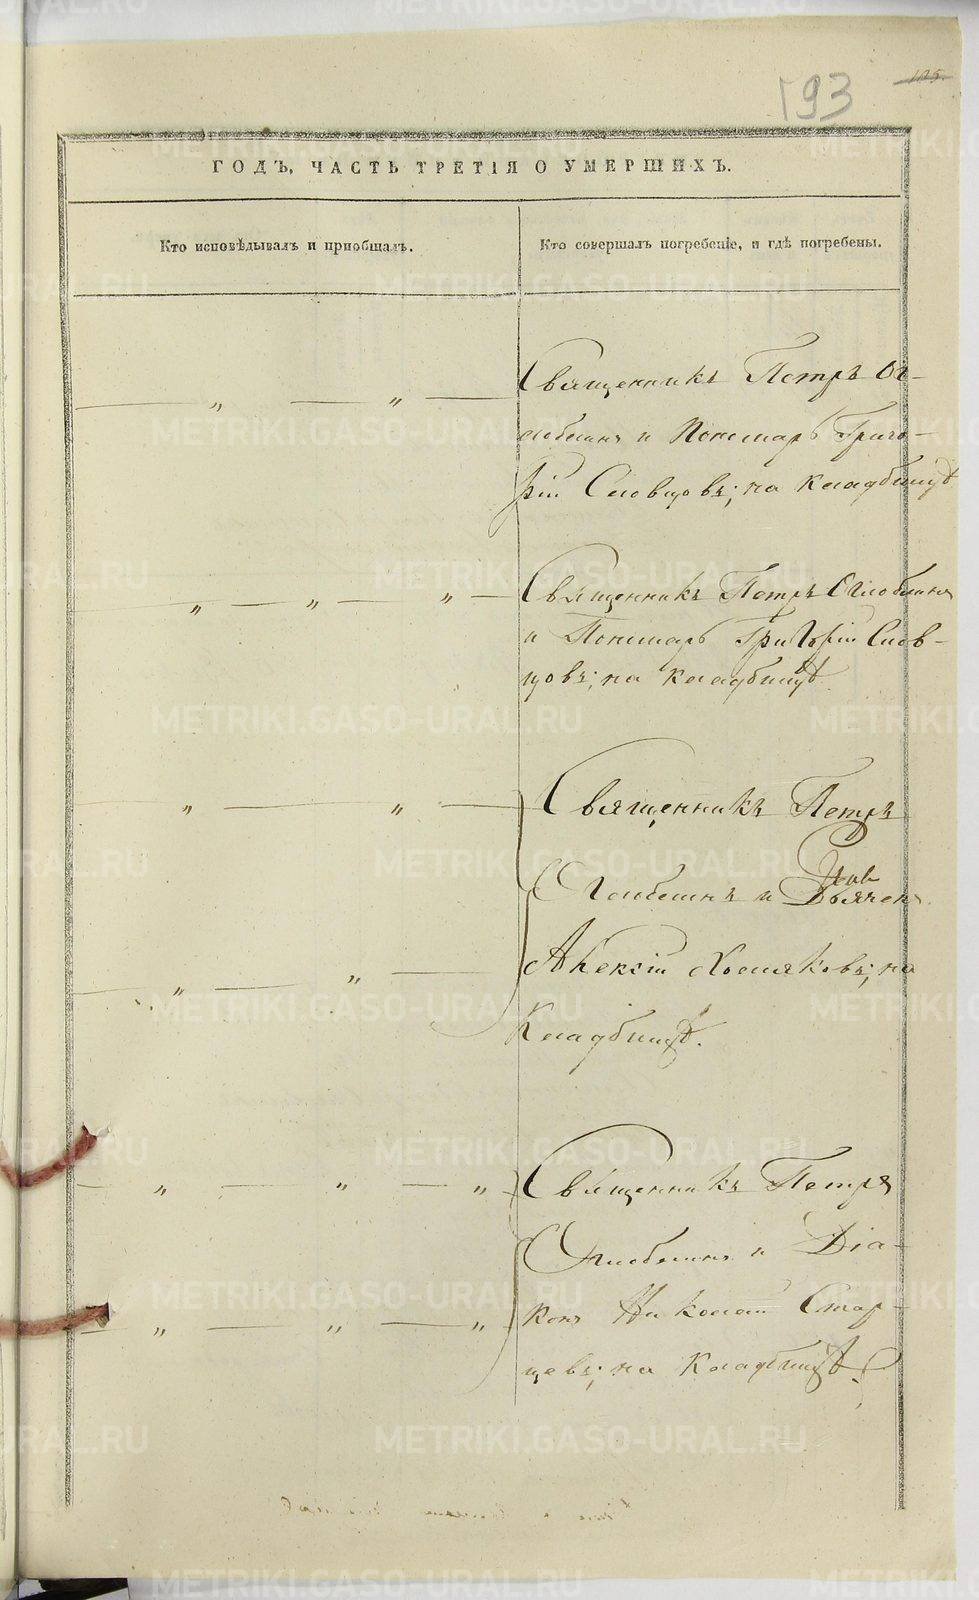 193
125.
ГОДЪ, ЧАСТЬ ТРЕТІЯ О УМЕРШИХЪ.
Кто исповѣдывалъ и пріобщалъ.
Кто совершалъ погребеніе, и гдѣ погребены.
Священникъ Петръ Ог-
лоблинъ и Пономарь Григо-
рій Словцовъ; на кладбищѣ
Священникъ Петръ Оглоблинъ
и Пономарь Григорій Слов-
цовъ; на кладбищѣ
Священникъ Петръ
Оглоблинъ и Дьячекъ
Алексій Хомяковъ; на
Кладбищѣ.
Священникъ Петръ
Оглоблинъ и Діа-
конъ Николай Стар-
цевъ; на кладбищѣ.
METRIKI.GASO-URAL.RU